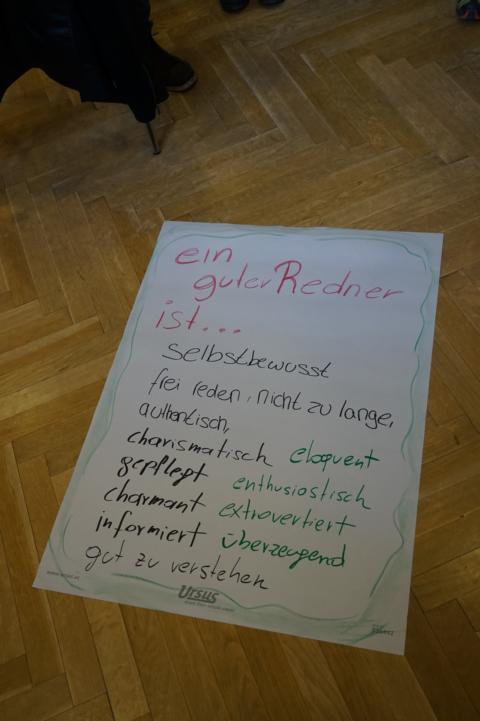 ein
guter Redner
ist...
selbstbewusst
frei reden, nicht zu lange,
authentisch,
charismatisch eloquent
gepflegt enthusiastisch
charmant extrovertiert
informiert überzeugend
gut zu verstehen
URSUS